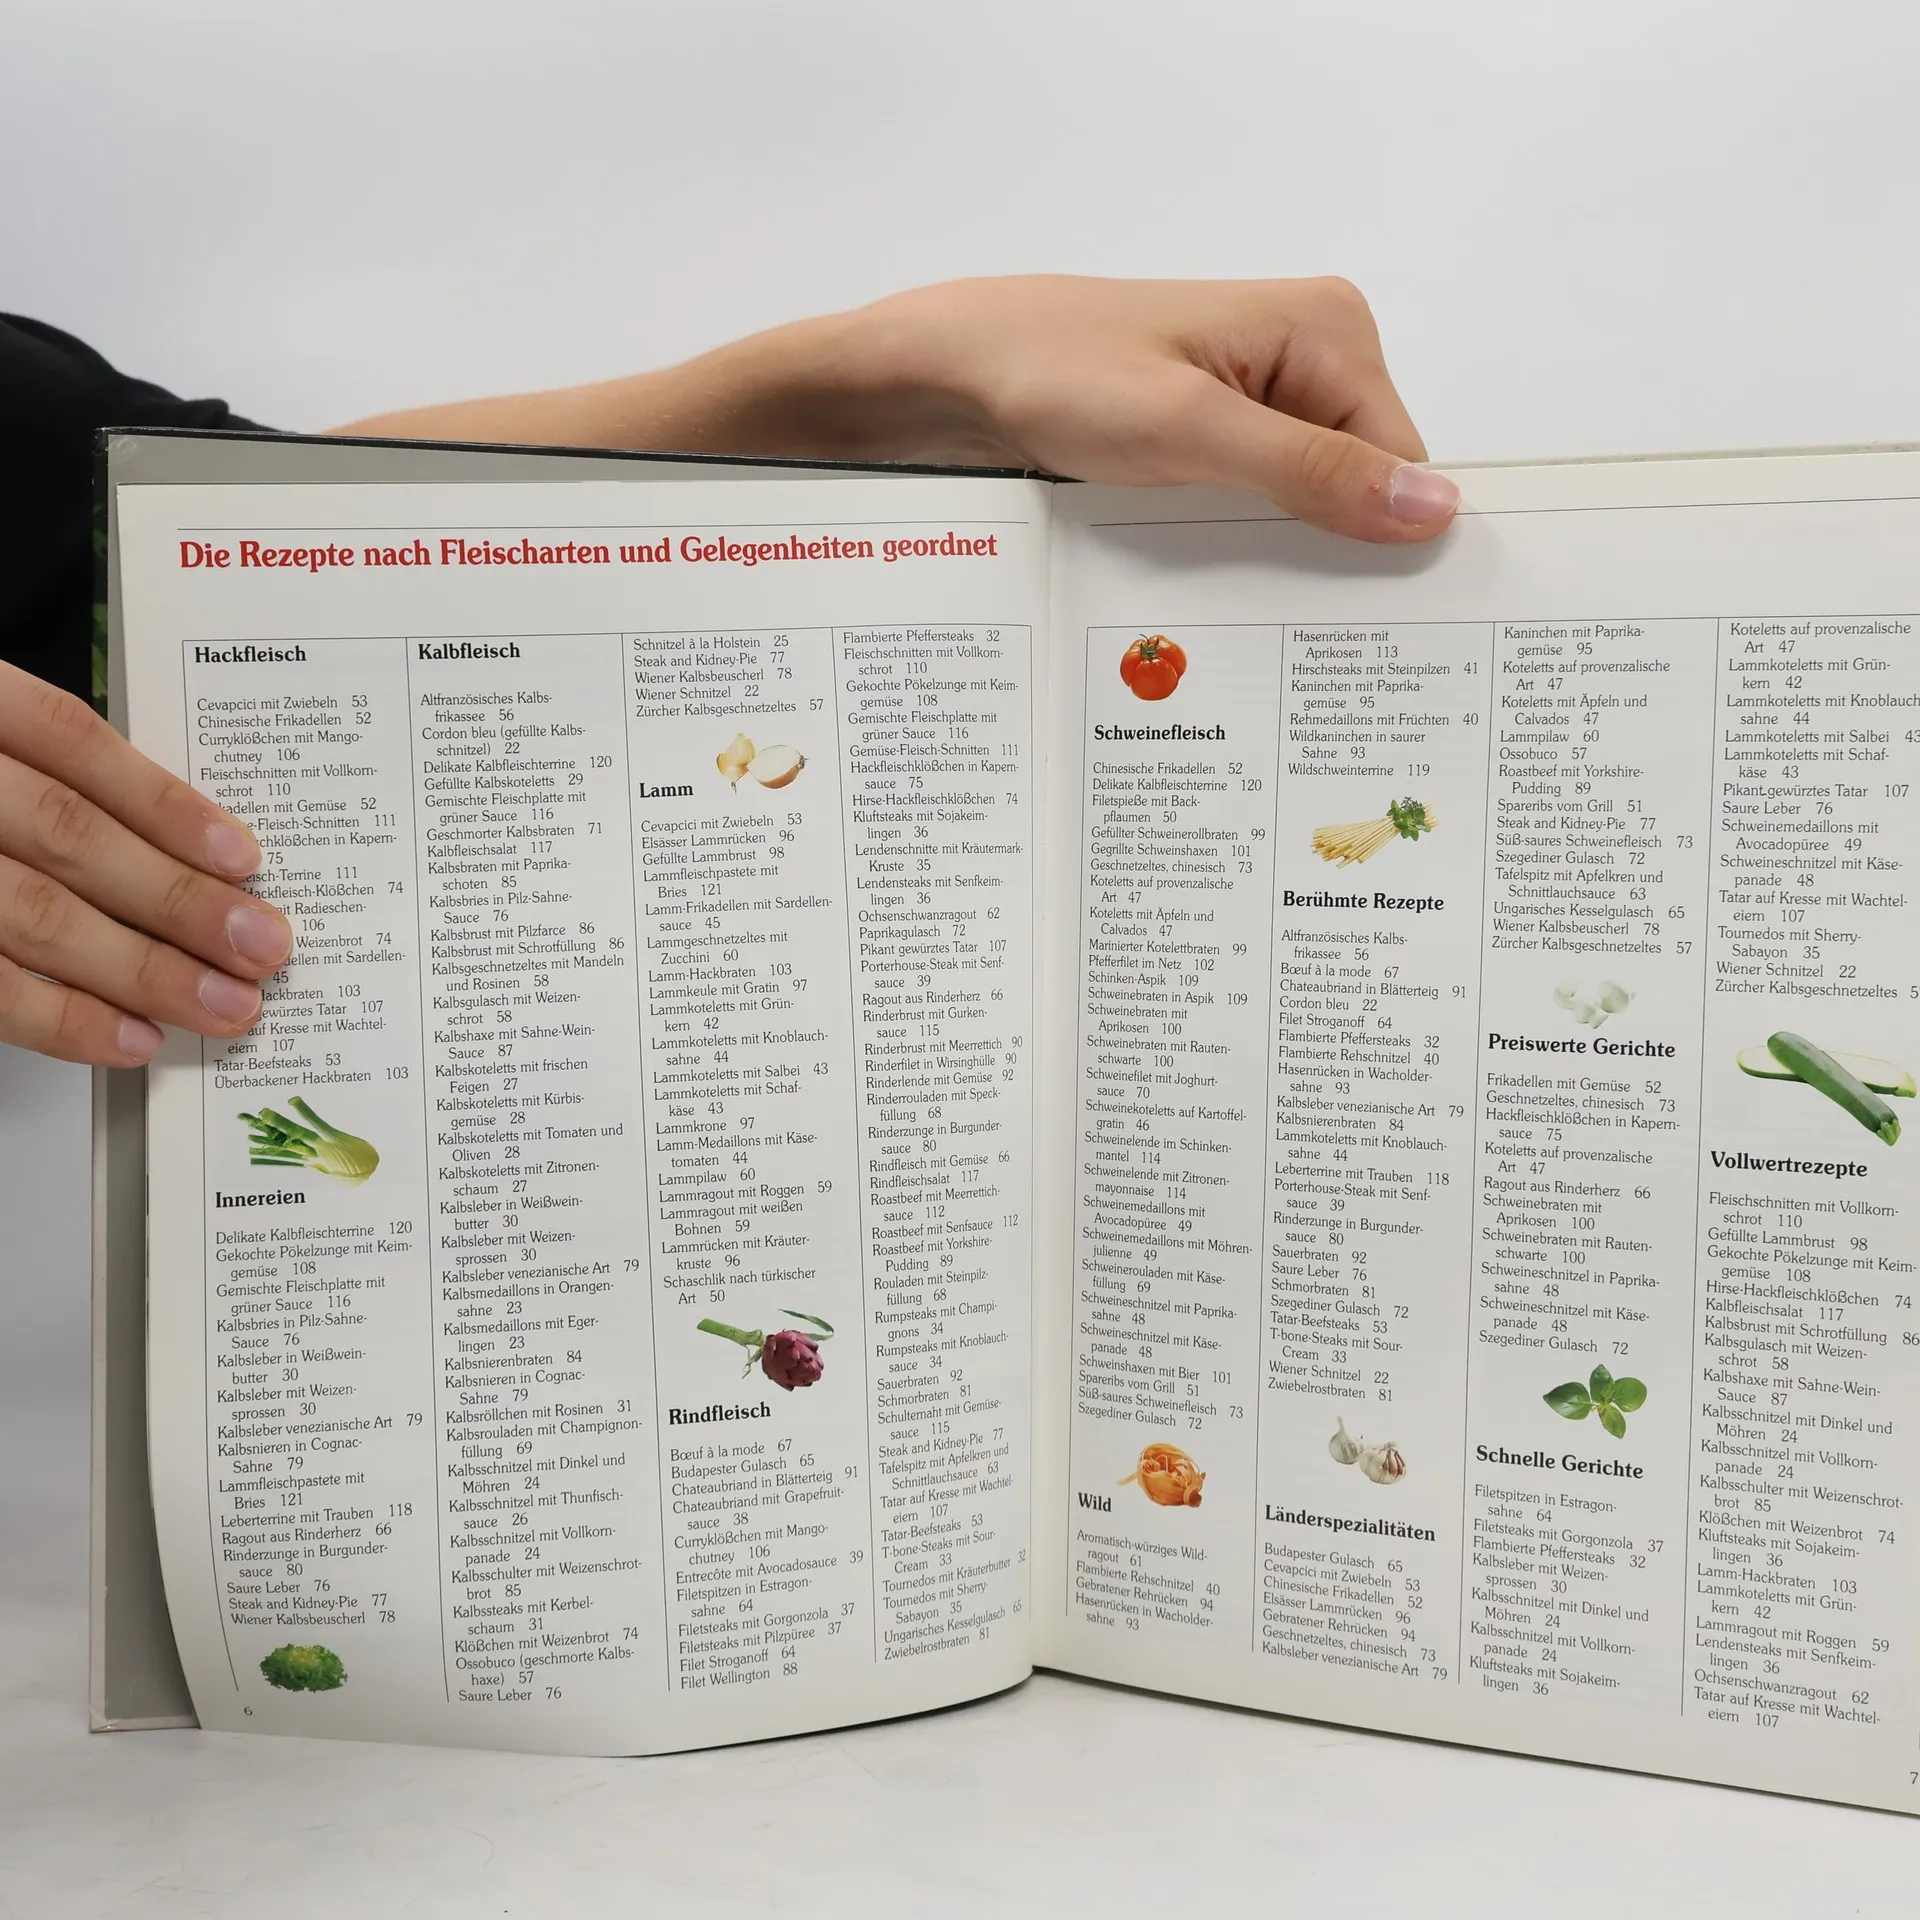 Die Rezepte nach Fleischarten und Gelegenheiten geordnet
Hackfleisch
Cevapcici mit Zwiebeln 53
Chinesische Frikadellen 52
Curryklößchen mit Mango-
chutney 106
Fleischschnitten mit Vollkorn-
schrot 110
kadellen mit Gemüse 52
e-Fleisch-Schnitten 111
schklößchen in Kapern-
75
eisch-Terrine 111
Hackfleisch-Klößchen 74
it Radieschen-
106
Weizenbrot 74
dellen mit Sardellen-
45
Hackbraten 103
ewürztes Tatar 107
auf Kresse mit Wachtel-
eiern 107
Tatar-Beefsteaks 53
Überbackener Hackbraten 103
Innereien
Delikate Kalbfleischterrine 120
Gekochte Pökelzunge mit Keim-
gemüse 108
Gemischte Fleischplatte mit
grüner Sauce 116
Kalbsbries in Pilz-Sahne-
Sauce 76
Kalbsleber in Weißwein-
butter 30
Kalbsleber mit Weizen-
sprossen 30
Kalbsleber venezianische Art 79
Kalbsnieren in Cognac-
Sahne 79
Lammfleischpastete mit
Bries 121
Leberterrine mit Trauben 118
Ragout aus Rinderherz 66
Rinderzunge in Burgunder-
sauce 80
Saure Leber 76
Steak and Kidney-Pie 77
Wiener Kalbsbeuscherl 78
6
Kalbfleisch
Altfranzösisches Kalbs-
frikassee 56
Cordon bleu (gefüllte Kalbs-
schnitzel) 22
Delikate Kalbfleischterrine 120
Gefüllte Kalbskoteletts 29
Gemischte Fleischplatte mit
grüner Sauce 116
Geschmorter Kalbsbraten 71
Kalbfleischsalat 117
Kalbsbraten mit Paprika-
schoten 85
Kalbsbries in Pilz-Sahne-
Sauce 76
Kalbsbrust mit Pilzfarce 86
Kalbsbrust mit Schrotfüllung 86
Kalbsgeschnetzeltes mit Mandeln
und Rosinen 58
Kalbsgulasch mit Weizen-
schrot 58
Kalbshaxe mit Sahne-Wein-
Sauce 87
Kalbskoteletts mit frischen
Feigen 27
Kalbskoteletts mit Kürbis-
gemüse 28
Kalbskoteletts mit Tomaten und
Oliven 28
Kalbskoteletts mit Zitronen-
schaum 27
Kalbsleber in Weißwein-
butter 30
Kalbsleber mit Weizen-
sprossen 30
Kalbsleber venezianische Art 79
Kalbsmedaillons in Orangen-
sahne 23
Kalbsmedaillons mit Eger-
lingen 23
Kalbsnierenbraten 84
Kalbsnieren in Cognac-
Sahne 79
Kalbsröllchen mit Rosinen 31
Kalbsrouladen mit Champignon-
füllung 69
Kalbsschnitzel mit Dinkel und
Möhren 24
Kalbsschnitzel mit Thunfisch-
sauce 26
Kalbsschnitzel mit Vollkorn-
panade 24
Kalbsschulter mit Weizenschrot-
brot 85
Kalbssteaks mit Kerbel-
schaum 31
Klößchen mit Weizenbrot 74
Ossobuco (geschmorte Kalbs-
haxe) 57
Saure Leber 76
Schnitzel à la Holstein 25
Steak and Kidney-Pie 77
Wiener Kalbsbeuscherl 78
Wiener Schnitzel 22
Zürcher Kalbsgeschnetzeltes 57
Lamm
Cevapcici mit Zwiebeln 53
Elsässer Lammrücken 96
Gefüllte Lammbrust 98
Lammfleischpastete mit
Bries 121
Lamm-Frikadellen mit Sardellen-
sauce 45
Lammgeschnetzeltes mit
Zucchini 60
Lamm-Hackbraten 103
Lammkeule mit Gratin 97
Lammkoteletts mit Grün-
kern 42
Lammkoteletts mit Knoblauch-
sahne 44
Lammkoteletts mit Salbei 43
Lammkoteletts mit Schaf-
käse 43
Lammkrone 97
Lamm-Medaillons mit Käse-
tomaten 44
Lammpilaw 60
Lammragout mit Roggen 59
Lammragout mit weißen
Bohnen 59
Lammrücken mit Kräuter-
kruste 96
Schaschlik nach türkischer
Art 50
Rindfleisch
Bœuf à la mode 67
Budapester Gulasch 65
Chateaubriand in Blätterteig 91
Chateaubriand mit Grapefruit-
sauce 38
Curryklößchen mit Mango-
chutney 106
Entrecôte mit Avocadosauce 39
Filetspitzen in Estragon-
sahne 64
Filetsteaks mit Gorgonzola 37
Filetsteaks mit Pilzpüree 37
Filet Stroganoff 64
Filet Wellington 88
Flambierte Pfeffersteaks 32
Fleischschnitten mit Vollkorn-
schrot 110
Gekochte Pökelzunge mit Keim-
gemüse 108
Gemischte Fleischplatte mit
grüner Sauce 116
Gemüse-Fleisch-Schnitten 111
Hackfleischklößchen in Kapern-
sauce 75
Hirse-Hackfleischklößchen 74
Kluftsteaks mit Sojakeim-
lingen 36
Lendenschnitte mit Kräutermark-
Kruste 35
Lendensteaks mit Senfkeim-
lingen 36
Ochsenschwanzragout 62
Paprikagulasch 72
Pikant gewürztes Tatar 107
Porterhouse-Steak mit Senf-
sauce 39
Ragout aus Rinderherz 66
Rinderbrust mit Gurken-
sauce 115
Rinderbrust mit Meerrettich 90
Rinderfilet in Wirsinghülle 90
Rinderlende mit Gemüse 92
Rinderrouladen mit Speck-
füllung 68
Rinderzunge in Burgunder-
sauce 80
Rindfleisch mit Gemüse 66
Rindfleischsalat 117
Roastbeef mit Meerrettich-
sauce 112
Roastbeef mit Senfsauce 112
Roastbeef mit Yorkshire-
Pudding 89
Rouladen mit Steinpilz-
füllung 68
Rumpsteaks mit Champi-
gnons 34
Rumpsteaks mit Knoblauch-
sauce 34
Sauerbraten 92
Schmorbraten 81
Schulternaht mit Gemüse-
sauce 115
Steak and Kidney-Pie 77
Tafelspitz mit Apfelkren und
Schnittlauchsauce 63
Tatar auf Kresse mit Wachtel-
eiern 107
Tatar-Beefsteaks 53
T-bone-Steaks mit Sour-
Cream 33
Tournedos mit Kräuterbutter 32
Tournedos mit Sherry-
Sabayon 35
Ungarisches Kesselgulasch 65
Zwiebelrostbraten 81
Schweinefleisch
Chinesische Frikadellen 52
Delikate Kalbfleischterrine 120
Filetspieße mit Back-
pflaumen 50
Gefüllter Schweinerollbraten 99
Gegrillte Schweinshaxen 101
Geschnetzeltes, chinesisch 73
Koteletts auf provenzalische
Art 47
Koteletts mit Äpfeln und
Calvados 47
Marinierter Kotelettbraten 99
Pfefferfilet im Netz 102
Schinken-Aspik 109
Schweinebraten in Aspik 109
Schweinebraten mit
Aprikosen 100
Schweinebraten mit Rauten-
schwarte 100
Schweinefilet mit Joghurt-
sauce 70
Schweinekoteletts auf Kartoffel-
gratin 46
Schweinelende im Schinken-
mantel 114
Schweinelende mit Zitronen-
mayonnaise 114
Schweinemedaillons mit
Avocadopüree 49
Schweinemedaillons mit Möhren-
julienne 49
Schweinerouladen mit Käse-
füllung 69
Schweineschnitzel mit Paprika-
sahne 48
Schweineschnitzel mit Käse-
panade 48
Schweinshaxen mit Bier 101
Spareribs vom Grill 51
Süß-saures Schweinefleisch 73
Szegediner Gulasch 72
Wild
Aromatisch-würziges Wild-
ragout 61
Flambierte Rehschnitzel 40
Gebratener Rehrücken 94
Hasenrücken in Wacholder-
sahne 93
Hasenrücken mit
Aprikosen 113
Hirschsteaks mit Steinpilzen 41
Kaninchen mit Paprika-
gemüse 95
Rehmedaillons mit Früchten 40
Wildkaninchen in saurer
Sahne 93
Wildschweinterrine 119
Berühmte Rezepte
Altfranzösisches Kalbs-
frikassee 56
Bœuf à la mode 67
Chateaubriand in Blätterteig 91
Cordon bleu 22
Filet Stroganoff 64
Flambierte Pfeffersteaks 32
Flambierte Rehschnitzel 40
Hasenrücken in Wacholder-
sahne 93
Kalbsleber venezianische Art 79
Kalbsnierenbraten 84
Lammkoteletts mit Knoblauch-
sahne 44
Leberterrine mit Trauben 118
Porterhouse-Steak mit Senf-
sauce 39
Rinderzunge in Burgunder-
sauce 80
Sauerbraten 92
Saure Leber 76
Schmorbraten 81
Szegediner Gulasch 72
Tatar-Beefsteaks 53
T-bone-Steaks mit Sour-
Cream 33
Wiener Schnitzel 22
Zwiebelrostbraten 81
Länderspezialitäten
Budapester Gulasch 65
Cevapcici mit Zwiebeln 53
Chinesische Frikadellen 52
Elsässer Lammrücken 96
Gebratener Rehrücken 94
Geschnetzeltes, chinesisch 73
Kalbsleber venezianische Art 79
Kaninchen mit Paprika-
gemüse 95
Koteletts auf provenzalische
Art 47
Koteletts mit Äpfeln und
Calvados 47
Lammpilaw 60
Ossobuco 57
Roastbeef mit Yorkshire-
Pudding 89
Spareribs vom Grill 51
Steak and Kidney-Pie 77
Süß-saures Schweinefleisch 73
Szegediner Gulasch 72
Tafelspitz mit Apfelkren und
Schnittlauchsauce 63
Ungarisches Kesselgulasch 65
Wiener Kalbsbeuscherl 78
Zürcher Kalbsgeschnetzeltes 57
Preiswerte Gerichte
Frikadellen mit Gemüse 52
Geschnetzeltes, chinesisch 73
Hackfleischklößchen in Kapern-
sauce 75
Koteletts auf provenzalische
Art 47
Ragout aus Rinderherz 66
Schweinebraten mit
Aprikosen 100
Schweinebraten mit Rauten-
schwarte 100
Schweineschnitzel in Paprika-
sahne 48
Schweineschnitzel mit Käse-
panade 48
Szegediner Gulasch 72
Schnelle Gerichte
Filetspitzen in Estragon-
sahne 64
Filetsteaks mit Gorgonzola 37
Flambierte Pfeffersteaks 32
Kalbsleber mit Weizen-
sprossen 30
Kalbsschnitzel mit Dinkel und
Möhren 24
Kalbsschnitzel mit Vollkorn-
panade 24
Kluftsteaks mit Sojakeim-
lingen 36
Koteletts auf provenzalische
Art 47
Lammkoteletts mit Grün-
kern 42
Lammkoteletts mit Knoblauch
sahne 44
Lammkoteletts mit Salbei 43
Lammkoteletts mit Schaf-
käse 43
Pikant gewürztes Tatar 107
Saure Leber 76
Schweinemedaillons mit
Avocadopüree 49
Schweineschnitzel mit Käse-
panade 48
Tatar auf Kresse mit Wachtel-
eiern 107
Tournedos mit Sherry-
Sabayon 35
Wiener Schnitzel 22
Zürcher Kalbsgeschnetzeltes 5
Vollwertrezepte
Fleischschnitten mit Vollkorn-
schrot 110
Gefüllte Lammbrust 98
Gekochte Pökelzunge mit Keim-
gemüse 108
Hirse-Hackfleischklößchen 74
Kalbfleischsalat 117
Kalbsbrust mit Schrotfüllung 86
Kalbsgulasch mit Weizen-
schrot 58
Kalbshaxe mit Sahne-Wein-
Sauce 87
Kalbsschnitzel mit Dinkel und
Möhren 24
Kalbsschnitzel mit Vollkorn-
panade 24
Kalbsschulter mit Weizenschrot-
brot 85
Klößchen mit Weizenbrot 74
Kluftsteaks mit Sojakeim-
lingen 36
Lamm-Hackbraten 103
Lammkoteletts mit Grün-
kern 42
Lammragout mit Roggen 59
Lendensteaks mit Senfkeim-
lingen 36
Ochsenschwanzragout 62
Tatar auf Kresse mit Wachtel-
eiern 107
7